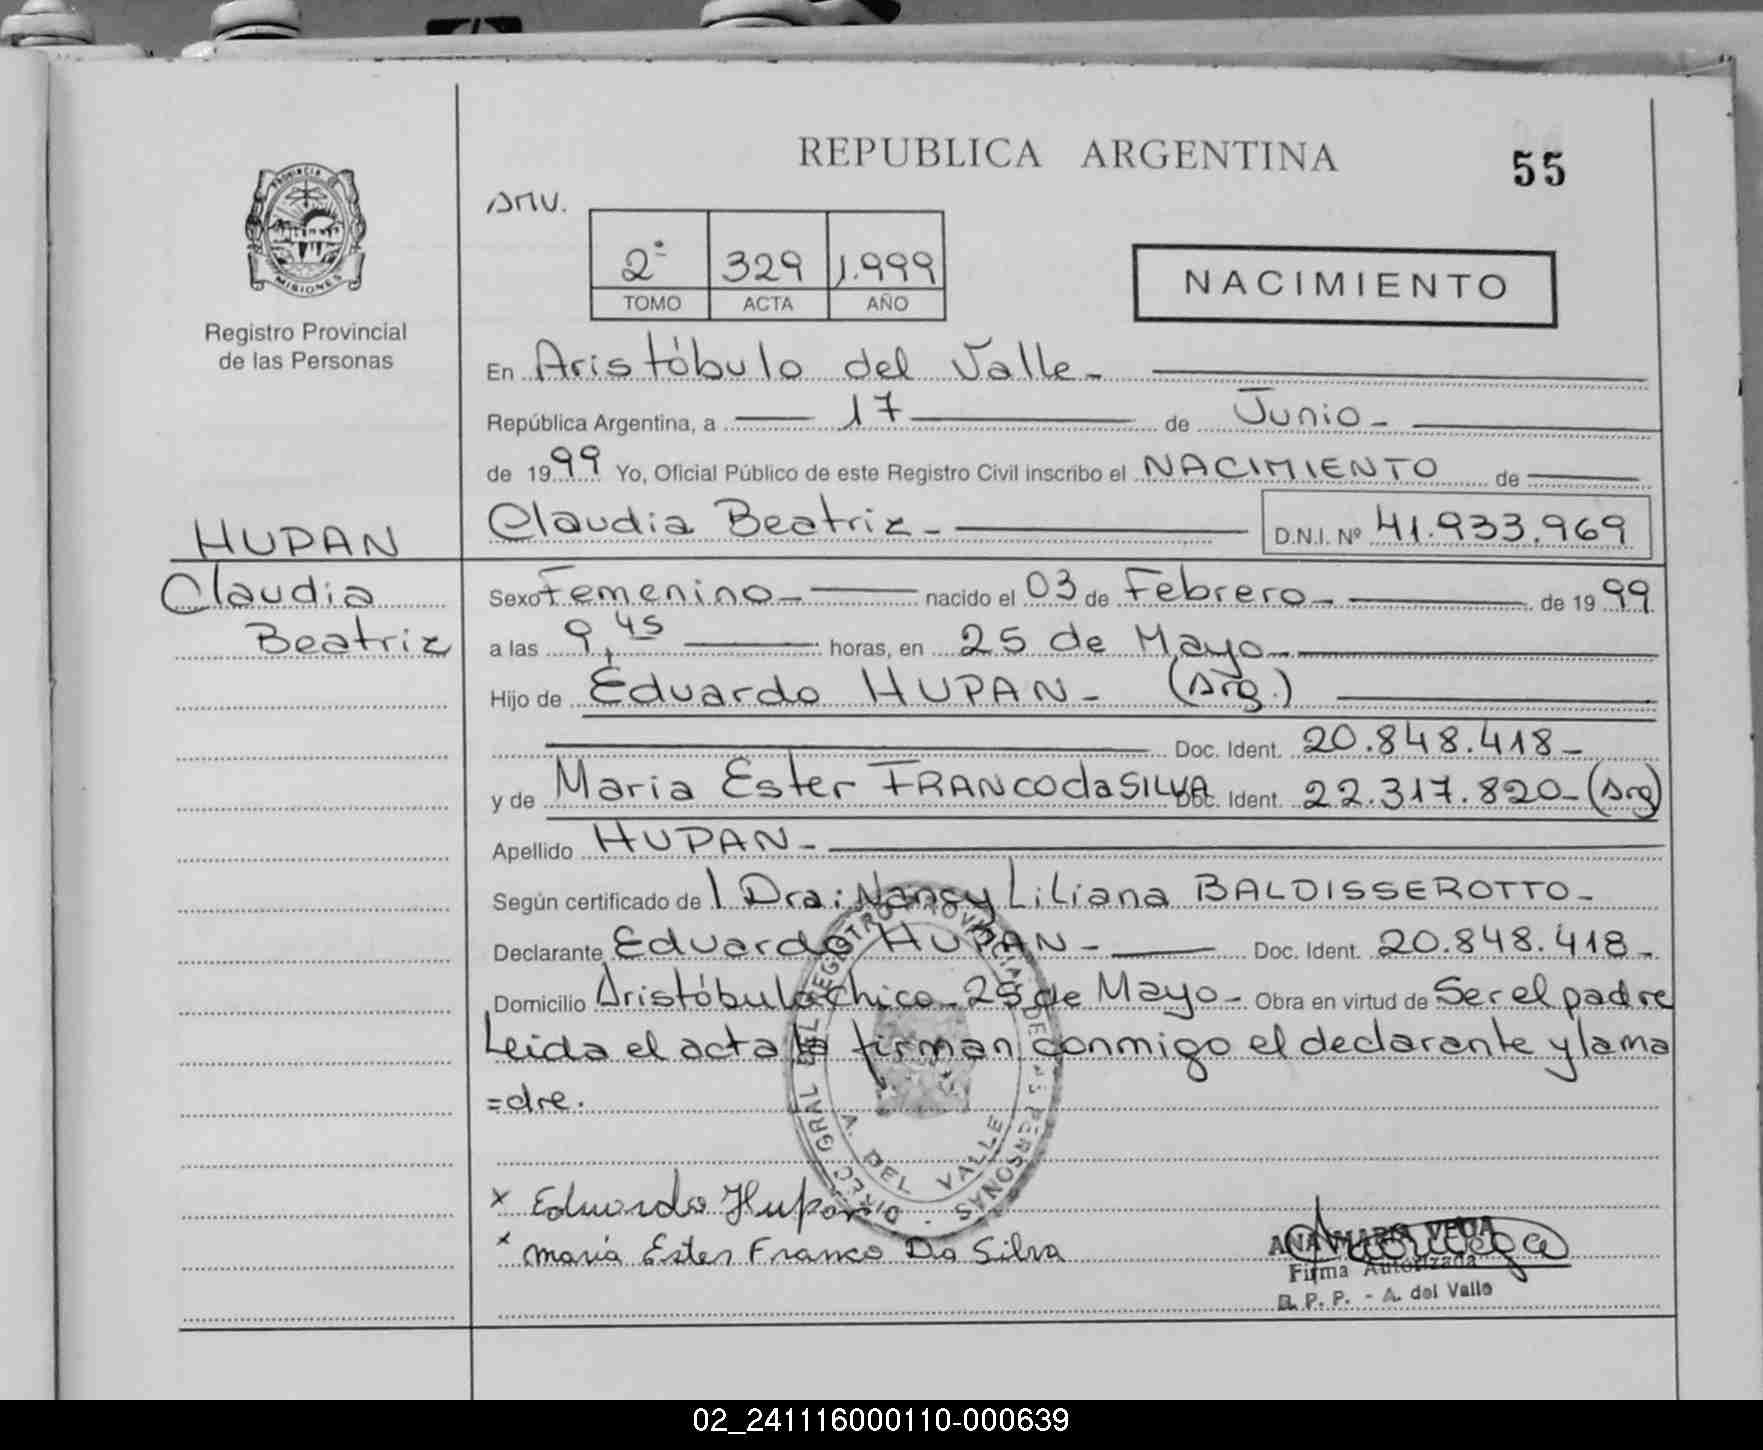 REPUBLICA ARGENTINA
55
PROVINCIA DE
MISIONES
Registro Provincial
de las Personas
AMV.
2º 329 1.999
TOMO ACTA AÑO
NACIMIENTO
En Aristóbulo del Valle-
República Argentina, a 17 de Junio-
de 1999 Yo, Oficial Público de este Registro Civil inscribo el NACIMIENTO de
HUPAN
Claudia Beatriz- D.N.I. Nº 41.933.969
Claudia
Beatriz
Sexo Femenino- nacido el 03 de Febrero- de 1999
a las 9,45 horas, en 25 de Mayo-
Hijo de Eduardo HUPAN- (Arg.)
Doc. Ident. 20.848.418-
y de Maria Ester FRANCO da SILVA Doc. Ident. 22.317.820-(Arg)
Apellido HUPAN-
Según certificado de 1 Dra: Nansy Liliana BALDISSEROTTO-
Declarante Eduardo HUPAN- Doc. Ident. 20.848.418-
Domicilio Aristóbulo chico-25 de Mayo- Obra en virtud de Ser el padre
Leida el acta la firman conmigo el declarante y la ma
=dre.
DIREC. GRAL DEL REGISTRO PROVINCIAL DE LAS PERSONAS
A. DEL VALLE
x Eduardo Hupan
x maria Ester Franco Da Silva
ANA MARIA VEGA
Firma Autorizada
R. P. P. - A. del Valle
02_241116000110-000639